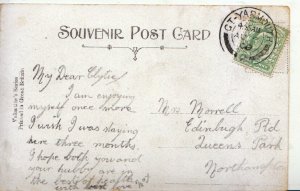 SOUVENIR POST CARD
GT-YARMOUTH
Valentine's Series
Printed in Great Britain
My Dear
I am enjoying
myself once more
I wish I was staying
here three months.
I hope both you and
your hubby are in
the best of
Mrs Norrell
Edinburgh Rd
Queens Park
Northampton